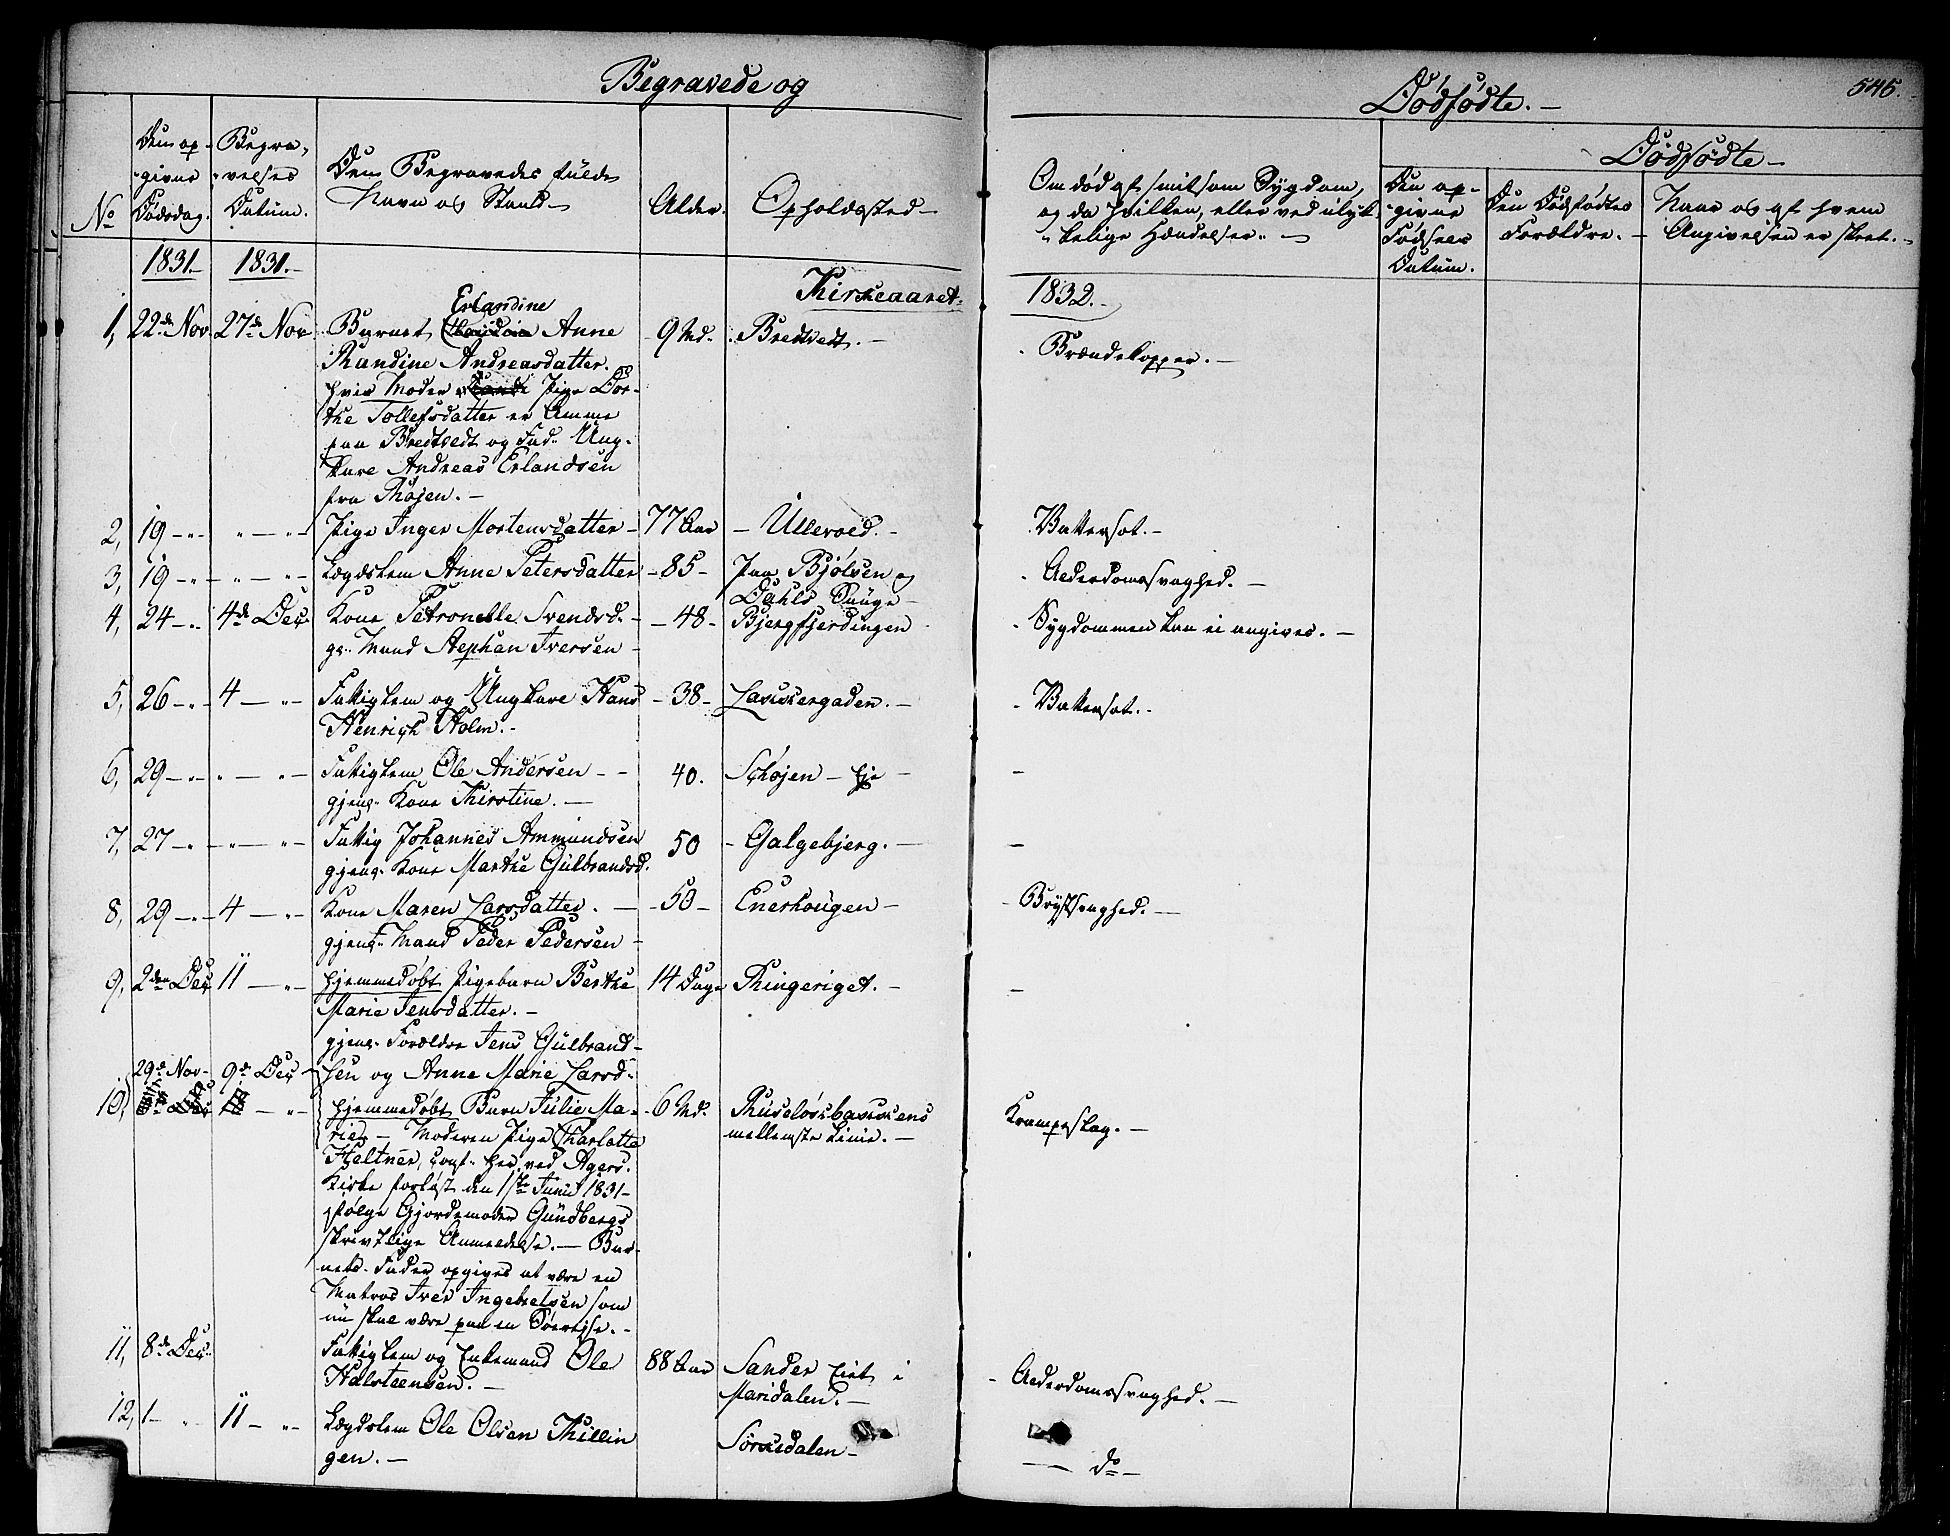 Begravede og
Dødfødte. —
545.
No
Den op-
givne
Dødsdag.
Begra-
velses
Datum.
Den Begravedes fulde
Navn og Stand —
Alder.
Opholdssted —
Om død af smitsom Sygdom,
og da hvilken, eller ved ulyk-
kelige Hændelser. —
Dødfødte —
Den op-
givne
Fødsels
Datum.
Den Dødfødtes
Forældre. —
Naar og af hvem
Angivelsen er skeet. —
1831.— 1831.—
Kirkeaaret 1832.—
Erlandine
1, 22de Nov 27de Nov Barnet Anne 9 Md. Bredtvedt. — Børnekopper. —
Randine Andreasdatter.
hvis Moder Pige Dor-
the Tollefsdatter er Amme
paa Bredtvedt og Fad. Ung-
karl Andreas Erlandsen
fra Thøjen. —
2, 19 — „ „ — „ Pige Inger Mortensdatter — 77 Aar — Ullevold. — Vattersot. —
3, 19 — „ „ — „ Lægdslem Anne Petersdatter — 85 — paa Bjølsen og - Alderdomssvaghed. —
Dahls Sauge —
4, 24 — „ 4de Dec. Kone Petronelle Svendsd. — 48 — Bjergfjerdingen - Sygdommen kan ei angives. —
gv. Mand Stephan Iversen —
5, 26 — „ 4 — „ Fattiglem og Ungkarl Hans — 38 — Lakkergaden. — - Vattersot. —
Henrich Holm. —
6, 29 — „ „ — „ Fattiglem Ole Andersen — 40. Schøjen — Eje — —
gjenl. Kone Kirstine. —
7, 27 — „ „ — „ Fattig Johannes Ammundsen 50 — Galgebjerg. — —
gjenl. Kone Marthe Gulbrandsd.
8, 29 — „ 4 — „ Kone Maren Larsdatter. — 50 — Enerhougen — - Brystsvaghed. —
gjenl. Mand Peder Pedersen —
9, 2den Dec 11 — „ hjemmedøbt Pigebarn Berthe 14 Dage Ringeriget. — —
Marie Jensdatter. —
gjenl. Forældre Jens Gulbrand-
sen og Anne Marie Larsd.
29de Nov. 9de Dec.
10, hjemmedøbt Barn Julie Ma- 6 Md. Ruseløkbakkens Krampeslag. —
rie — Moderen Pige Charlotte mellemste Linie. —
Heltner, conf. her ved Agers
Kirke forløst den 1ste Junii 1831
ifølge Gjordemoder Gundbergs
skrivtlige Anmeldelse. — Bar-
nets Fader opgives at være en
Matros Iver Ingebretsen som
nu skal være paa en Søereise. —
11, 8de Dec. Fattiglem og Enkemand Ole 88 Aar Sander Eiet i - Alderdomssvaghed. —
Halsteensen. — Maridalen. —
12, 1 — „ 11 — „ Lægdslem Ole Olsen Killin Sørkedalen — — do —
gen. —